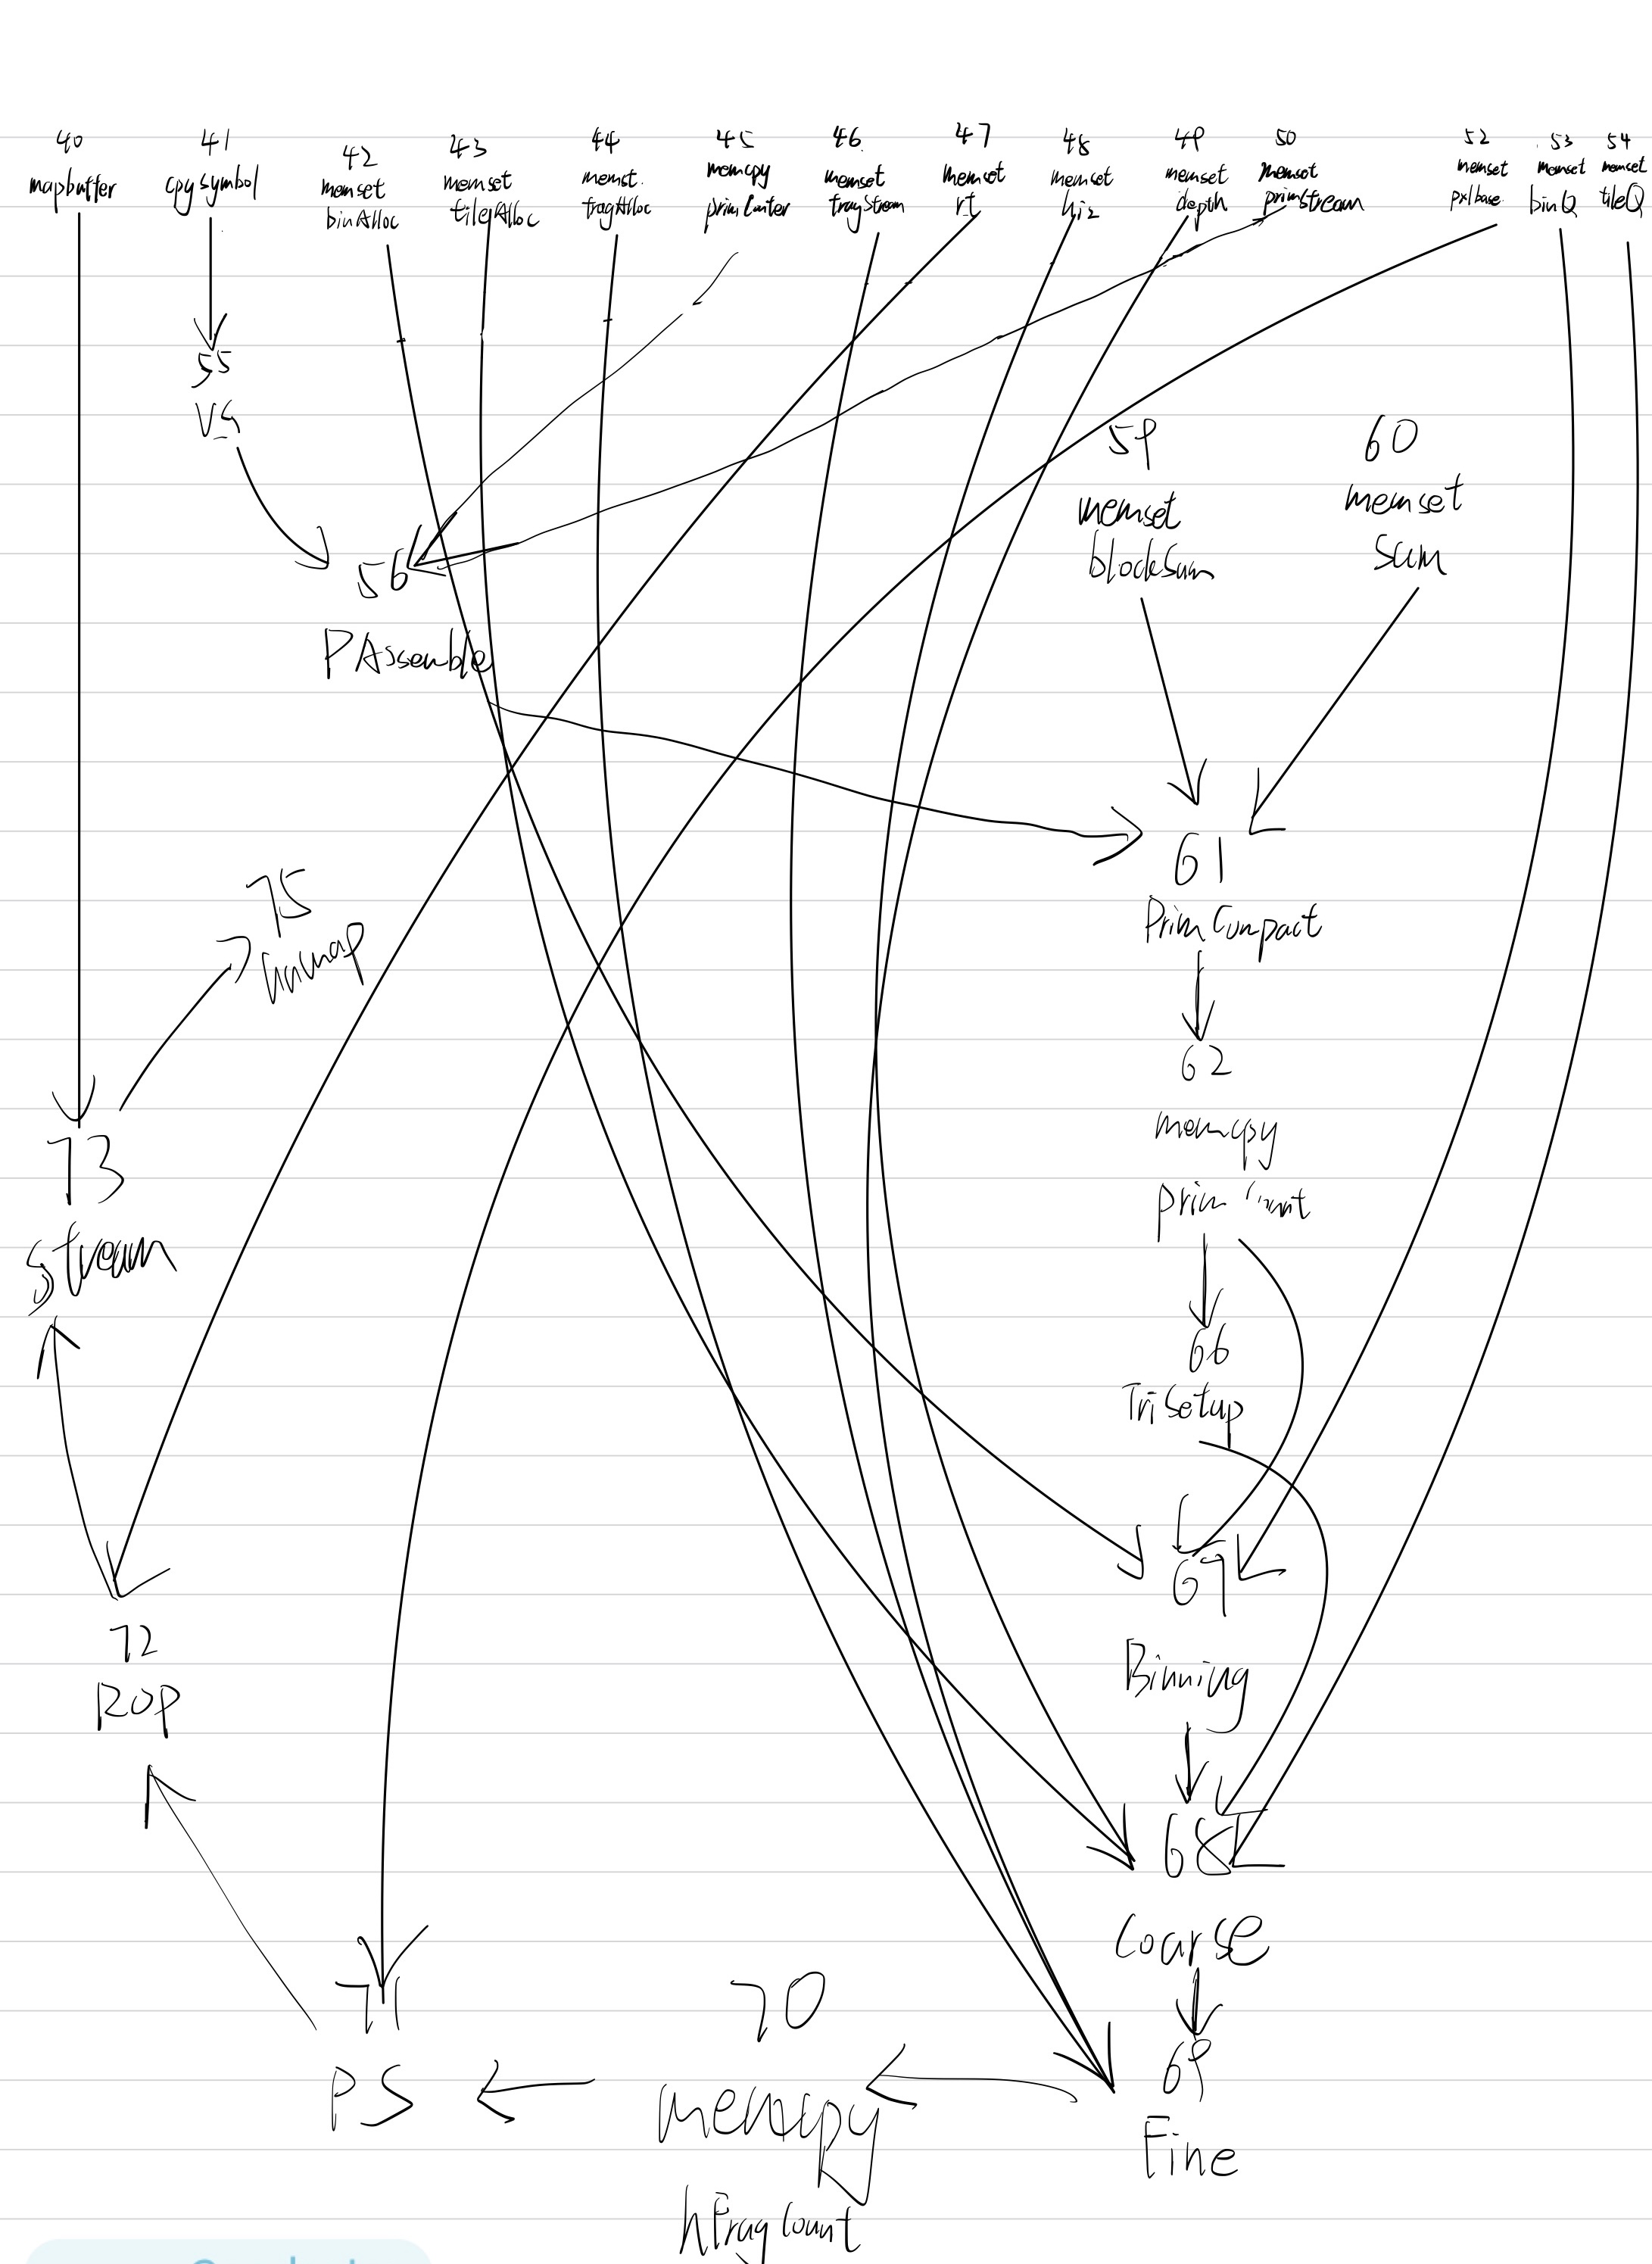 40
mapbuffer
41
cpysymbol
42
memset
binAlloc
43
memset
tileAlloc
44
memst.
fragAlloc
45
memcpy
46
memset
fragStream
47
memset
rt
48
memset
hiz
49
memset
depth
50
memset
primStream
52
memset
pxlbase
53
memset
binQ
54
memset
tileQ
55
VS
56
PAssemble
59
memset
blockSum
60
memset
sum
61
PrimCompact
62
memcpy
66
TriSetup
67
Binning
68
Coarse
69
Fine
70
memcpy
hFragCount
71
PS
72
ROP
73
stream
75
unmap